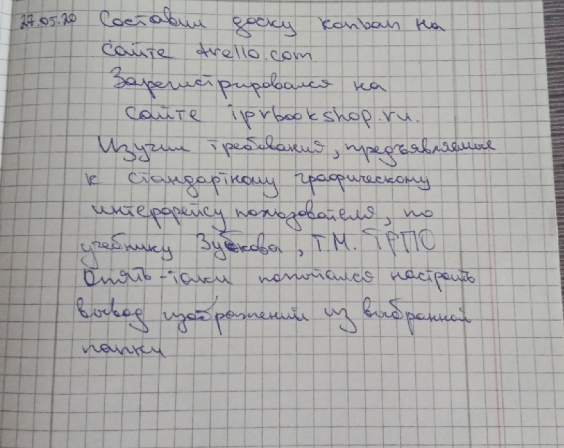 27.05.20 Составил доску канбан на
сайте trello.com
Зарегистрировался на
сайте iprbookshop.ru.
Изучил требования, предъявляемые
к стандартному графическому
интерфейсу пользователя, по
учебнику Зубкова, Т.М. ТРПО
Опять-таки попытался настроить
вывод изображений из выбранной
папки